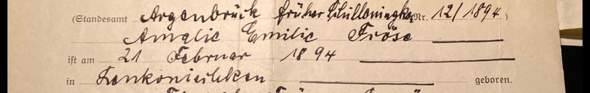 (Standesamt Argenbrück früher Schilleningken Nr. 12/1894)
Amalie Emilie Fröse
ist am 21 Februar 1894
in Lenkonischken geboren.